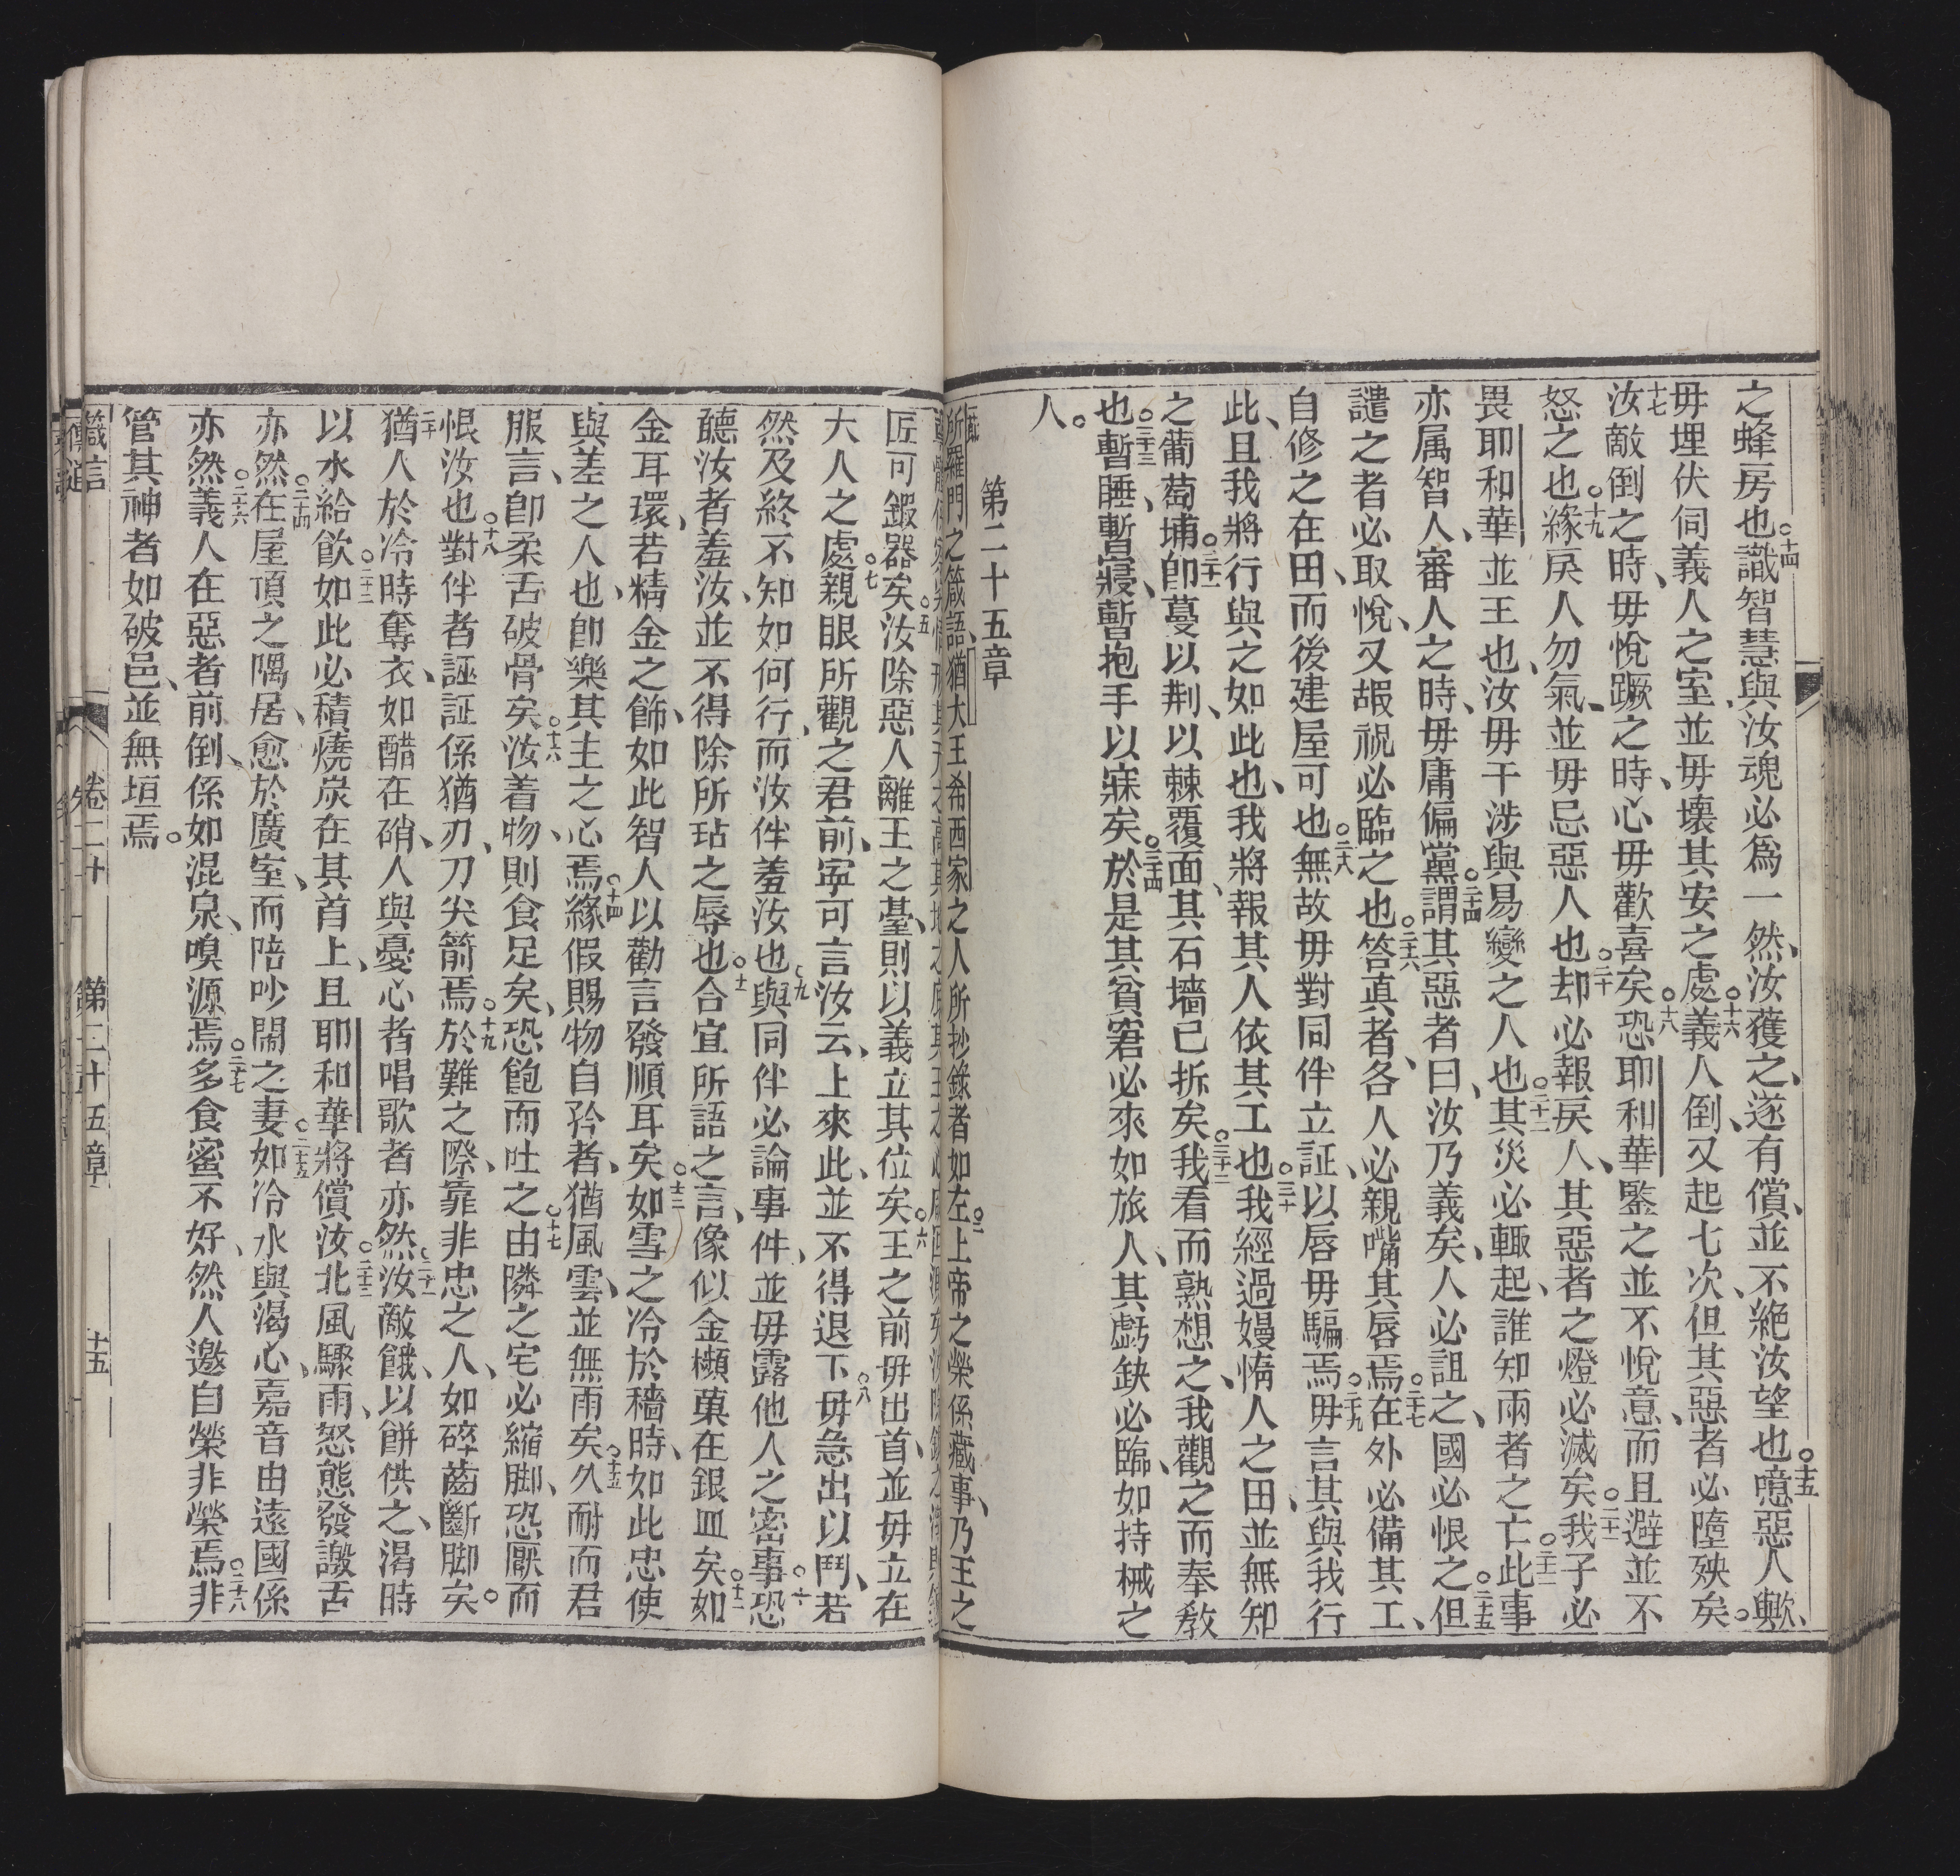 之蜂房也○十四識智慧與汝魂必爲一然、汝獲之、遂有償、並不絶汝望也○十五噫惡人歟、
毋埋伏伺義人之室、並毋壞其安之處○十六義人倒、又起七次、但其惡者必墮殃矣。
十七汝敵倒之時、毋悅、蹶之時、心毋歡喜矣○十八恐耶和華鑒之並不悅意、而且避並不
怒之也○十九緣戾人勿氣、並毋忌惡人也○二十却必報戾人、其惡者之燈必滅矣○二十一我子必
畏耶和華並王也、汝毋干涉與易變之人也○二十二其災必輙起、誰知兩者之亡○二十三此事
亦属智人、審人之時、毋庸偏黨○二十四謂其惡者曰、汝乃義矣、人必詛之、國必恨之○二十五但
譴之者必取悅、又嘏祝必臨之也○二十六答真者、各人必親嘴其唇焉○二十七在外必備其工、
自修之在田、而後建屋可也○二十八無故毋對同伴立証、以唇毋騙焉○二十九毋言其與我行
此、且我將行與之如此也、我將報其人依其工也○三十我經過嫚惰人之田、並無知
之葡萄埔○三十一卽蔓以荆、以棘覆面、其石墻已拆矣○三十二我看而熟想之、我觀之而奉教
也○三十三暫睡、暫寢、暫抱手以寐矣○三十四於是其貧窘必來如旅人、其虧缺必臨、如持械之
人。
第二十五章
所羅門之箴語、猶大王希西家之人所抄錄者如左○二上帝之榮係藏事、乃王之
匠可鍛器矣○五汝除惡人離王之臺、則以義立其位矣○六王之前毋出首、並毋立在
大人之處○七親眼所觀之君前、寧可言汝云、上來此、並不得退下○八毋急出以鬥、若
然及終不知如何行、而汝伴羞汝也○九與同伴必論事件、並毋露他人之密事○十恐
聽汝者羞汝、並不得除所玷之辱也○十一合宜所語之言、像似金櫴菓在銀皿矣○十二如
金耳環、若精金之飾、如此智人以勸言發順耳矣○十三如雪之冷於穡時、如此忠使
與差之人也、卽樂其主之心焉○十四緣假賜物自矜者、猶風雲、並無雨矣○十五久耐而君
服言、卽柔舌破骨矣○十六汝着物、則食足矣、恐飽而吐之○十七由隣之宅必縮脚、恐厭而
恨汝也○十八對伴者誣証係猶刃、刀尖箭焉○十九於難之際、靠非忠之人、如碎齒斷脚矣○
二十猶人於冷時奪衣、如醋在硝、人與憂心者唱歌者亦然○二十一汝敵餓、以餅供之、渴時
以水給飲○二十二如此必積燒炭在其首上、且耶和華將償汝○二十三北風驟雨、怒態發譭舌
亦然○二十四在屋頂之隅居、愈於廣室、而陪吵鬧之妻○二十五如冷水與渴心、嘉音由遠國係
亦然○二十六義人在惡者前倒、係如混泉、嗅源焉○二十七多食蜜不好、然人邀自榮非榮焉○二十八非
管其神者如破邑、並無垣焉。
箴言 卷二十 第二十五章 十五